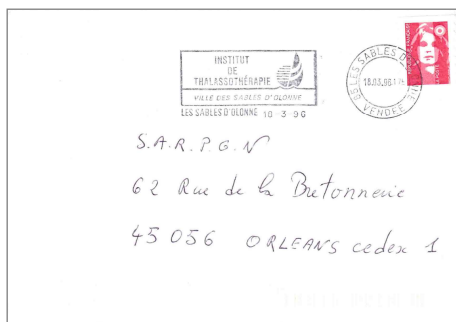 INSTITUT
DE
THALASSOTHÉRAPIE
VILLE DES SABLES D'OLONNE
LES SABLES D'OLONNE 10-3-96
85 LES SABLES D
VENDEE
S.A.R.P.G.N
62 Rue de la Bretonnerie
45056 ORLEANS cedex 1